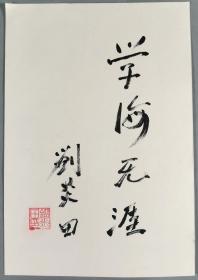 学海无涯
劉炎田